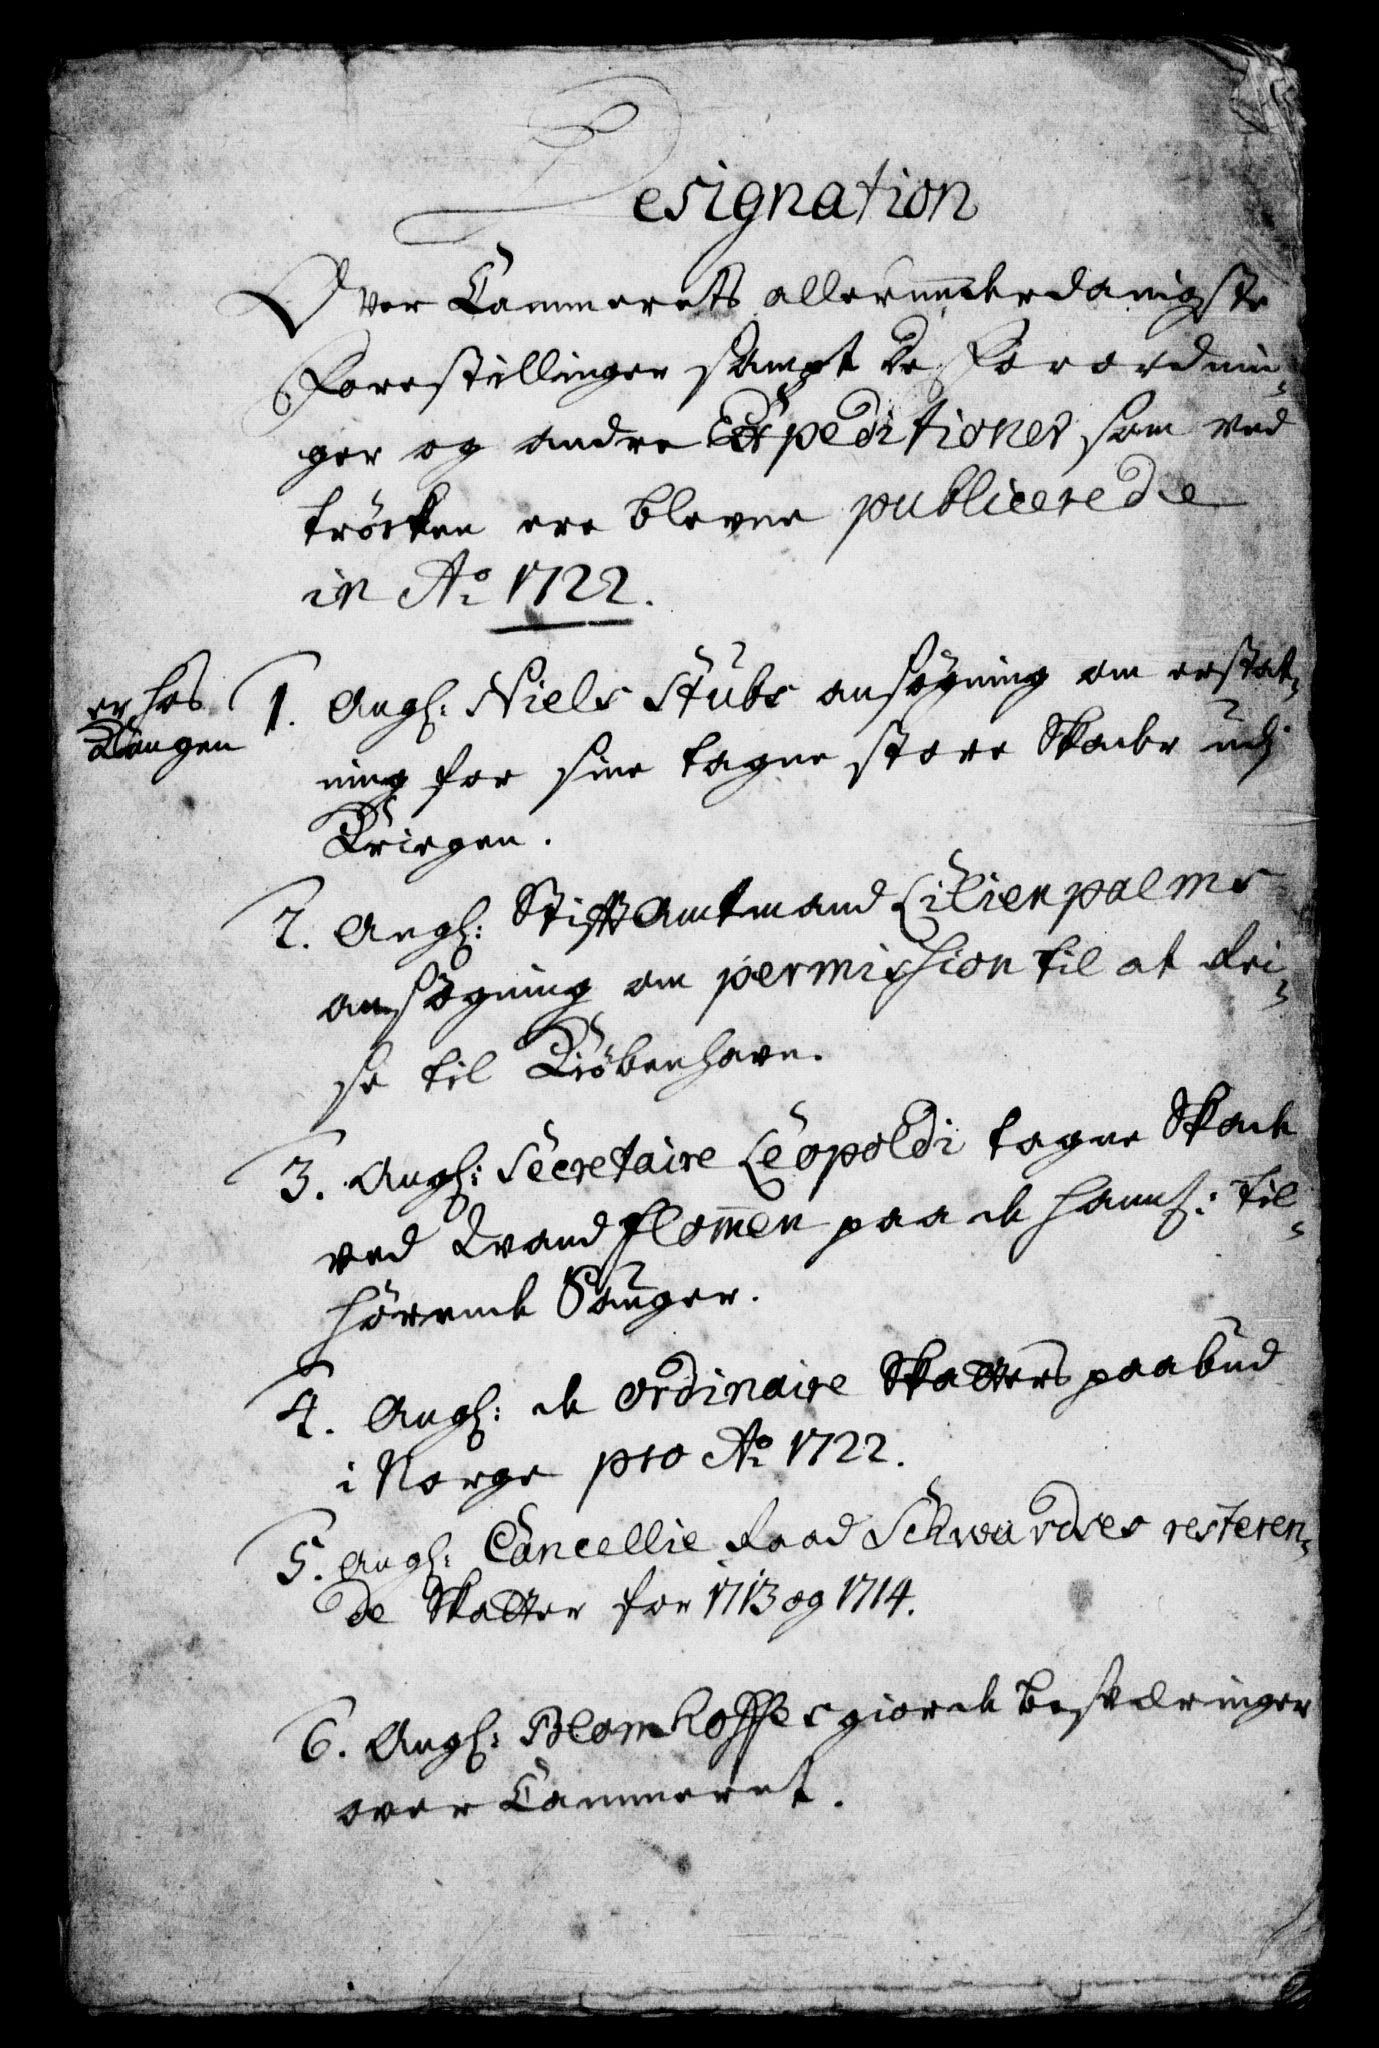 Designation
Over Cammerets allerunderdanigste
Forestillinger sampt de Forordnin-
ger og andre Expeditioner som ved
tröcken ere blevne publicerede
in Ao 1722.
er hos
Kongen
1. Angl: Niels Stubs ansögning om erstat-
ning for sine tagne store Skade udj
Kriegen.
2. Angl: StifftAmtmand Lilienpalms
ansögning om permission til at Rei-
se til Kiöbenhavn.
3. Angl: Secretaire Leopoldi tagne Skade
ved Vand flommen paa de hannß: til-
hörende Sauger.
4. Angl: de ordinaire Skatters paabud
i Norge pro Ao 1722.
5. Angl: Cancellie Raad Schwardses resteren-
de Skatter for 1713 og 1714.
6. Angl: Blomhoffes giorde besværinger
over Cammeret.